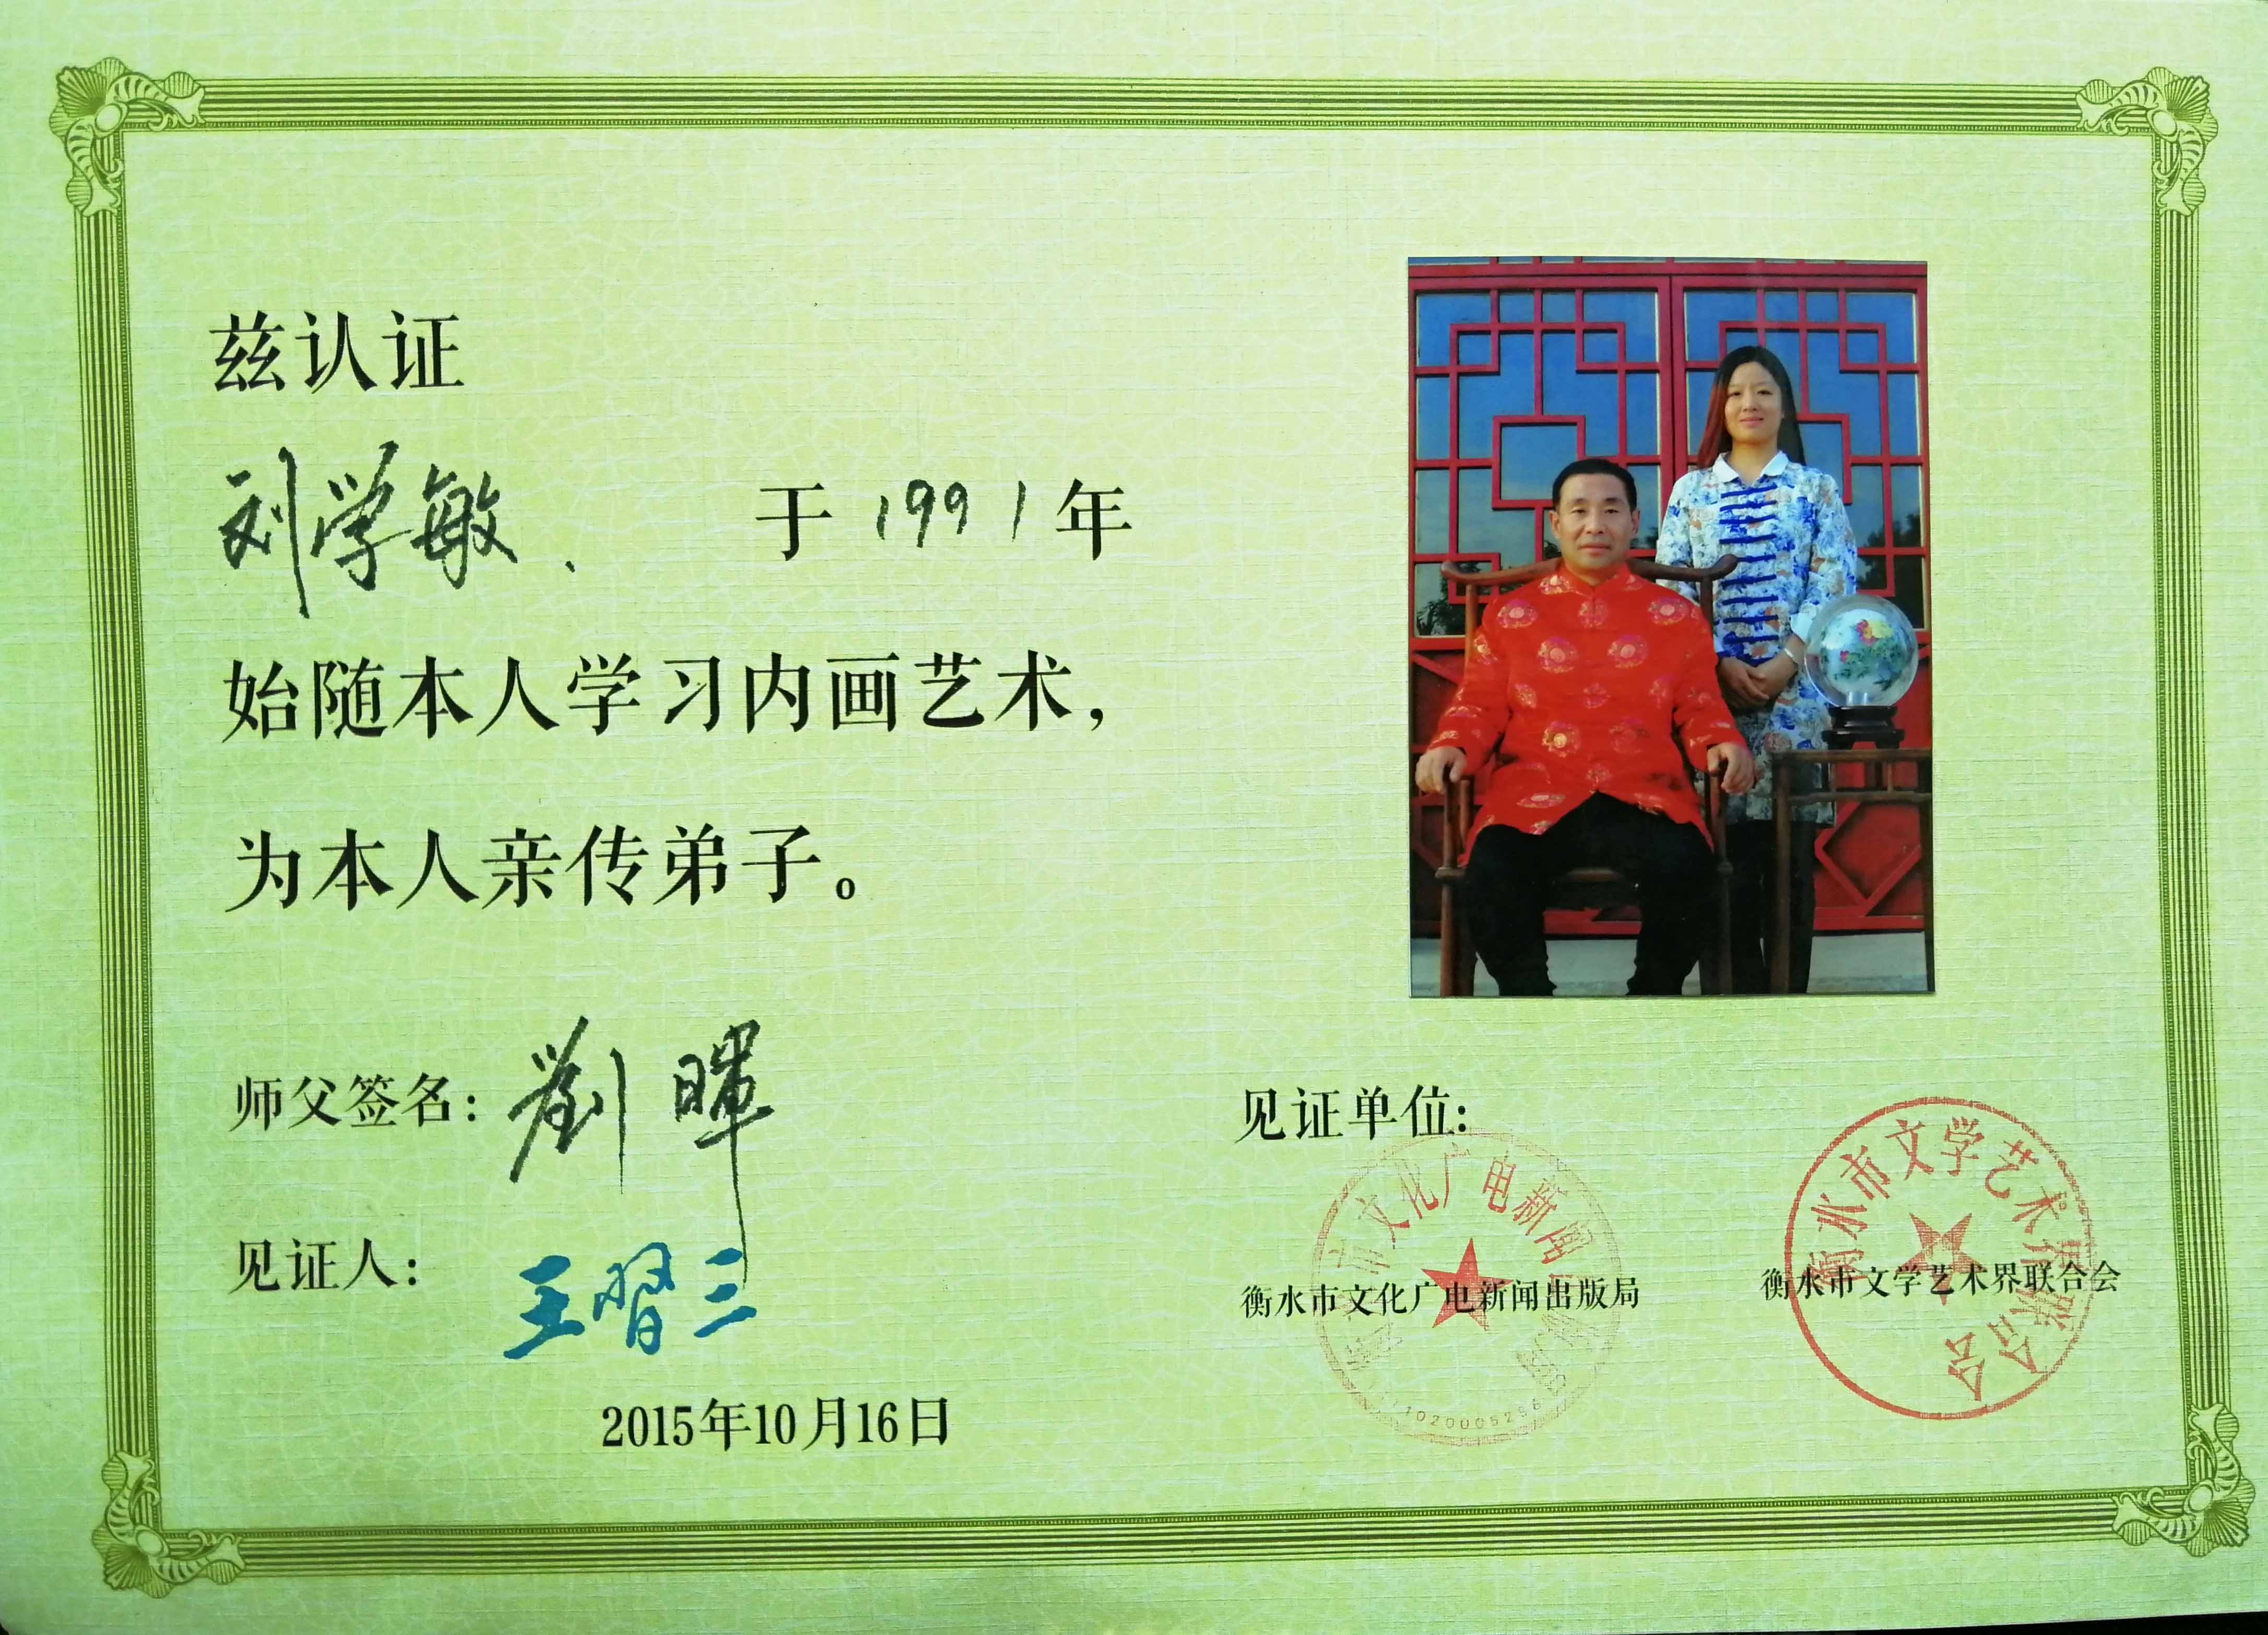 兹认证
刘学敏 于1991年
始随本人学习内画艺术,
为本人亲传弟子。
师父签名:劉暉
见证人:王習三
2015年10月16日
见证单位:
衡水市文化广电新闻出版局
衡水市文学艺术界联合会
衡水市文化广电新闻出版局
衡水市文学艺术界联合会